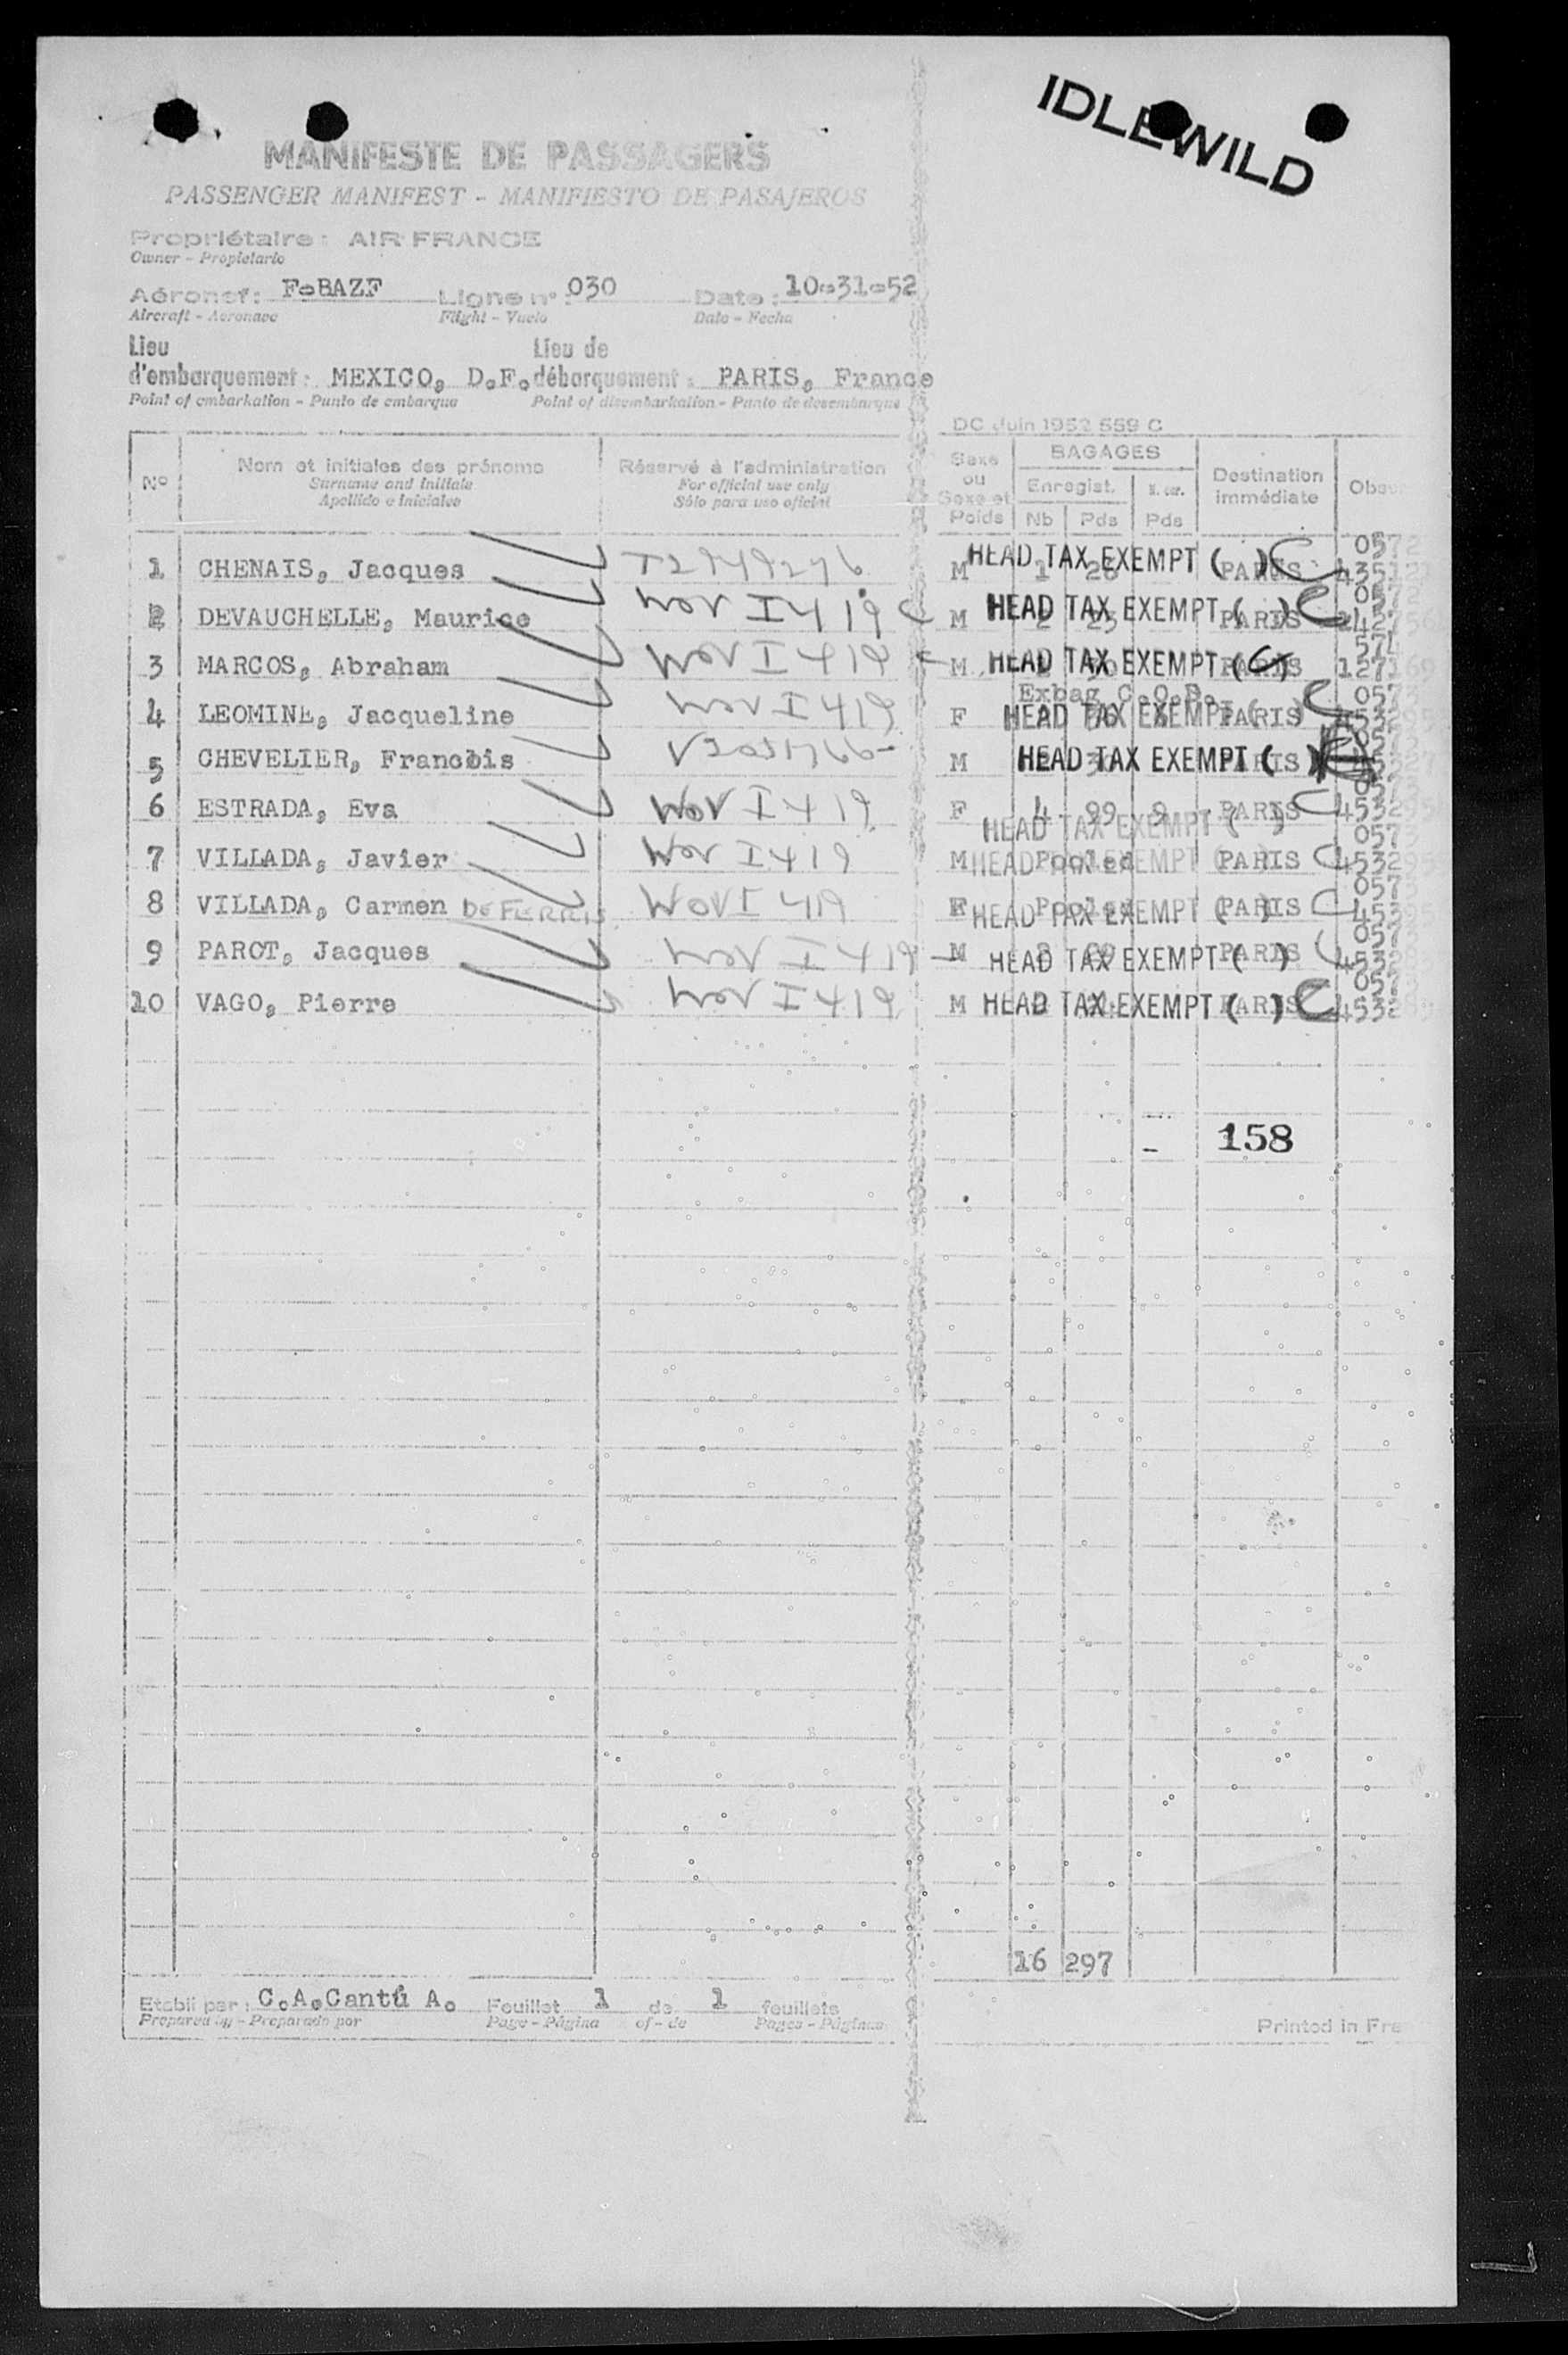 IDLEWILD
MANIFESTE DE PASSAGERS
PASSENGER MANIFEST - MANIFIESTO DE PASAJEROS
Propriétaire : AIR FRANCE
Owner - Propietario
Aéronef : F-BAZF Ligne n° : 030 Date : 10-31-52
Aircraft - Aeronave Flight - Vuelo Date - Fecha
Lieu Lieu de
d'embarquement : MEXICO, D.F. débarquement : PARIS, France
Point of embarkation - Punto de embarque Point of disembarkation - Punto de desembarque
DC Juin 1952 559 C
N° Nom et initiales des prénoms Réservé à l'administration Sexe ou Sexe et Poids BAGAGES Destination immédiate
Surname and initials For official use only Enregist.
Apellido e iniciales Sólo para uso oficial Nb Pds Pds
1 CHENAIS, Jacques M HEAD TAX EXEMPT ( ) PARIS 0572
2 DEVAUCHELLE, Maurice WOV I 419 M HEAD TAX EXEMPT ( ) PARIS
3 MARCOS, Abraham WOV I 419 M HEAD TAX EXEMPT ( ) PARIS
Exbag C.O.D.
4 LEOMINE, Jacqueline WOV I 419 F HEAD TAX EXEMPT ( ) PARIS
5 CHEVELIER, Francois M HEAD TAX EXEMPT ( ) PARIS
6 ESTRADA, Eva WOV I 419 F 4 99 9 PARIS
HEAD TAX EXEMPT ( )
7 VILLADA, Javier WOV I 419 M HEAD TAX EXEMPT Pooled PARIS
8 VILLADA, Carmen DE FERRIS WOV I 419 F HEAD TAX EXEMPT ( ) Pooled PARIS
9 PAROT, Jacques WOV I 419 M HEAD TAX EXEMPT ( ) PARIS
10 VAGO, Pierre WOV I 419 M HEAD TAX EXEMPT ( ) PARIS
158
16 297
Etabli par : C.A.Cantú A. Feuillet 1 de 1 feuillets
Prepared by - Preparado por Page - Página of - de Pages - Páginas
Printed in